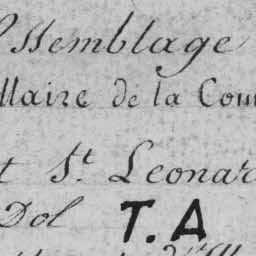 Assemblage
llaire de la Cou
t St. Leonar
Dol T.A